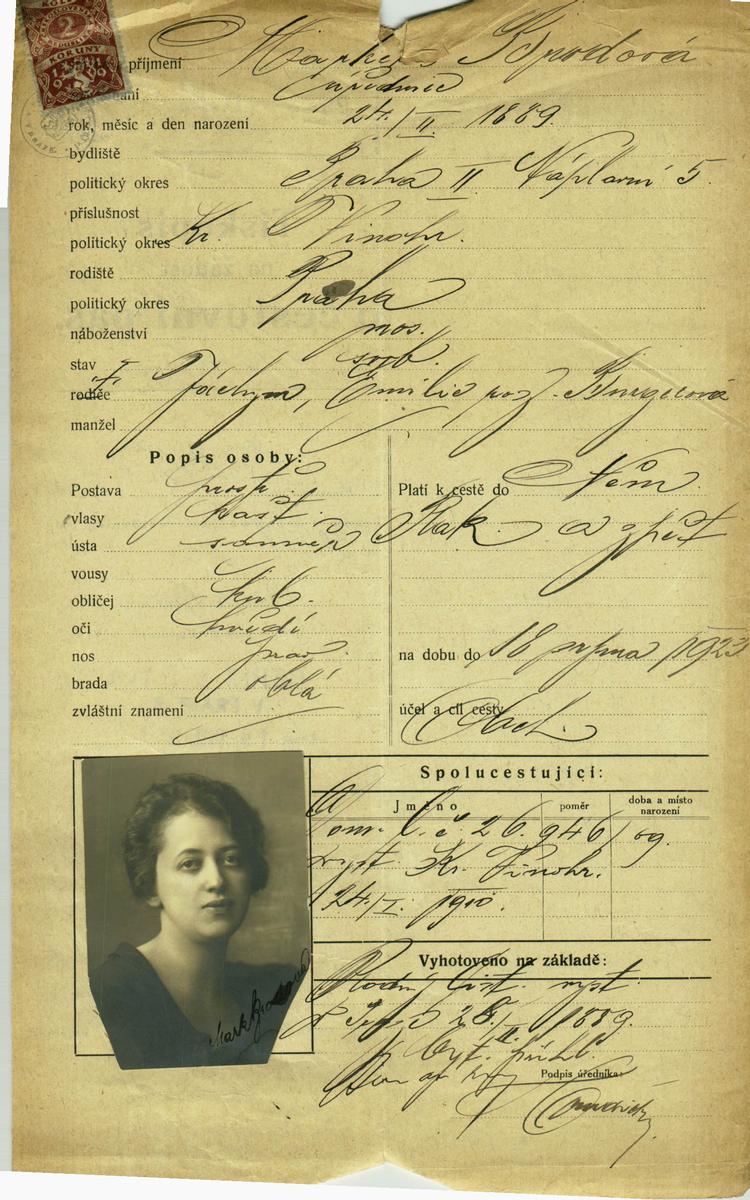 KOLEK
2
KORUNY
1919
příjmení Markéta Brodová
úřednice
rok, měsíc a den narození 24./II. 1889.
bydliště
politický okres Praha II Náplavní 5
příslušnost
politický okres Kr. Vinohr.
rodiště
politický okres Praha
náboženství mos.
stav svob.
rodiče Jáchym, Emilie roz.
manžel
Popis osoby:
Postava prostř.
vlasy kašt.
ústa souměr
vousy
obličej kul.
oči hnědí
nos prav.
brada oblá
zvláštní znamení
Platí k cestě do Něm
Rak. a zpět
na dobu do 18 srpna 1923
účel a cíl cesty Obch.
Mark Brodová
Spolucestující:
Jméno poměr doba a místo narození
Dom. l. č 26.946/09.
vyst. Kr. Vinohr.
24./I. 1910.
Vyhotoveno na základě:
list. vyst.
1889.
Podpis úředníka: